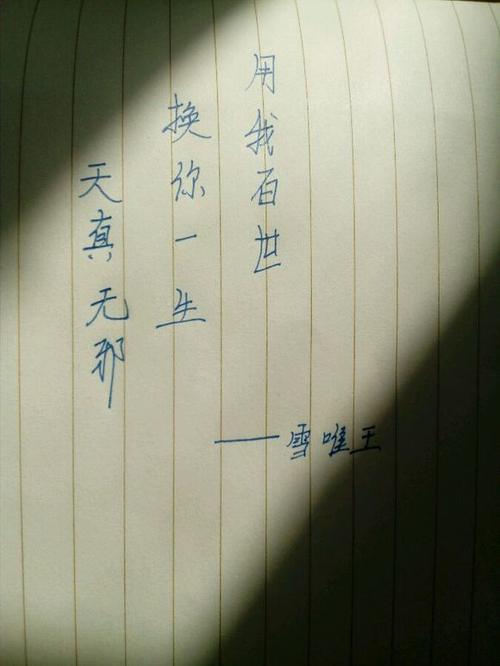 用我百世
换你一生
天真无邪
——雪唯王